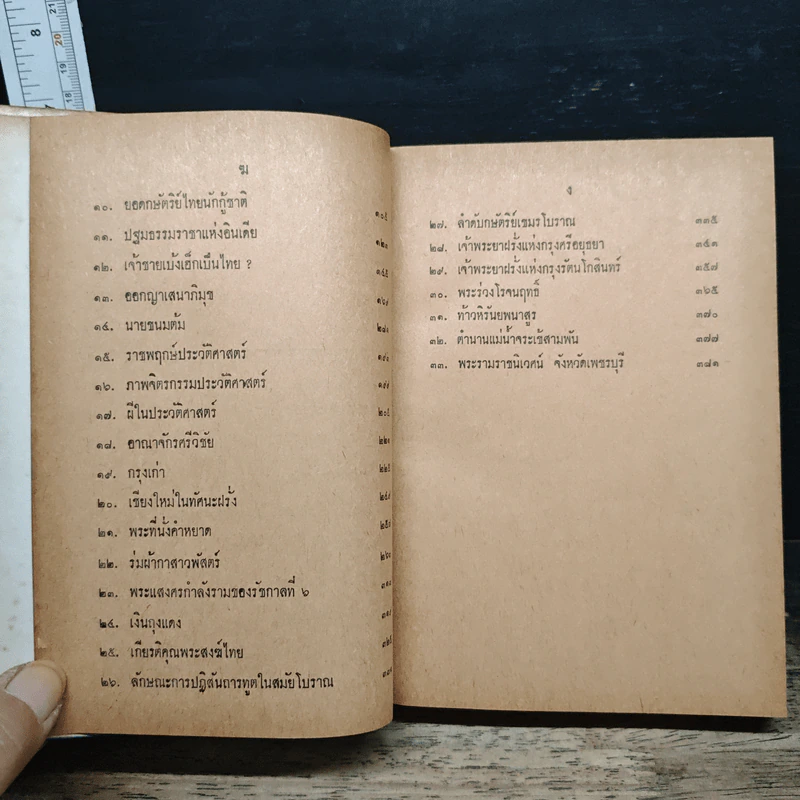 ฆ
๑๐. ยอดกษัตริย์ไทยนักกู้ชาติ ๑๐๕
๑๑. ปฐมธรรมราชาแห่งอินเดีย ๑๒๓
๑๒. เจ้าชายเบ้งเฮ็กเป็นไทย ?
๑๓. ออกญาเสนาภิมุข ๑๖๙
๑๔. นายขนมต้ม
๑๕. ราชพฤกษ์ประวัติศาสตร์
๑๖. ภาพจิตรกรรมประวัติศาสตร์ ๑๙๙
๑๗. ผีในประวัติศาสตร์ ๒๐๕
๑๘. อาณาจักรศรีวิชัย ๒๒๑
๑๙. กรุงเก่า ๒๒๕
๒๐. เชียงใหม่ในทัศนะฝรั่ง ๒๔๙
๒๑. พระที่นั่งคำหยาด ๒๕๑
๒๒. ร่มผ้ากาสาวพัสตร์ ๒๖๐
๒๓. พระแสงศรกำลังรามของรัชกาลที่ ๖
๒๔. เงินถุงแดง ๓๑๙
๒๕. เกียรติคุณพระสงฆ์ไทย
๒๖. ลักษณะการปฏิสันถารทูตในสมัยโบราณ
ง
๒๗. ลำดับกษัตริย์เขมรโบราณ ๓๓๕
๒๘. เจ้าพระยาฝรั่งแห่งกรุงศรีอยุธยา ๓๔๓
๒๙. เจ้าพระยาฝรั่งแห่งกรุงรัตนโกสินทร์ ๓๕๗
๓๐. พระร่วงโรจนฤทธิ์ ๓๖๕
๓๑. ท้าวหิรันยพนาสูร ๓๗๐
๓๒. ตำนานแม่น้ำจระเข้สามพัน ๓๗๗
๓๓. พระรามราชนิเวศน์ จังหวัดเพชรบุรี ๓๘๑
8
20
19
21
18